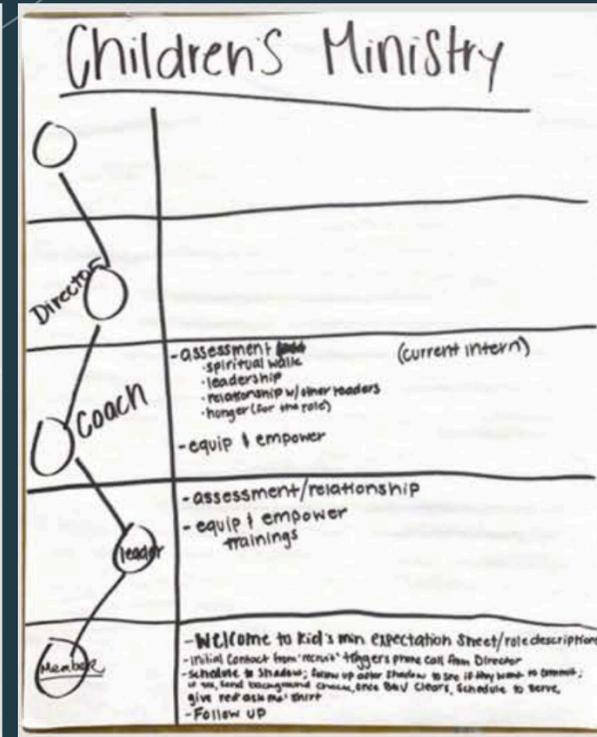 Children's Ministry
Director
Coach
-assessment
(current intern)
·spiritual walk
·leadership
·relationship w/other leaders
·hunger (for the role)
-equip & empower
leader
-assessment/relationship
-equip & empower
trainings
Member
-Welcome to Kid's min expectation sheet/role description
-initial contact from 'recruit' triggers phone call from Director
-schedule to Shadow; follow up after Shadow to see if they want to commit;
if so, send background check, once clears, schedule to serve,
give red 'ask me' shirt
-Follow UP